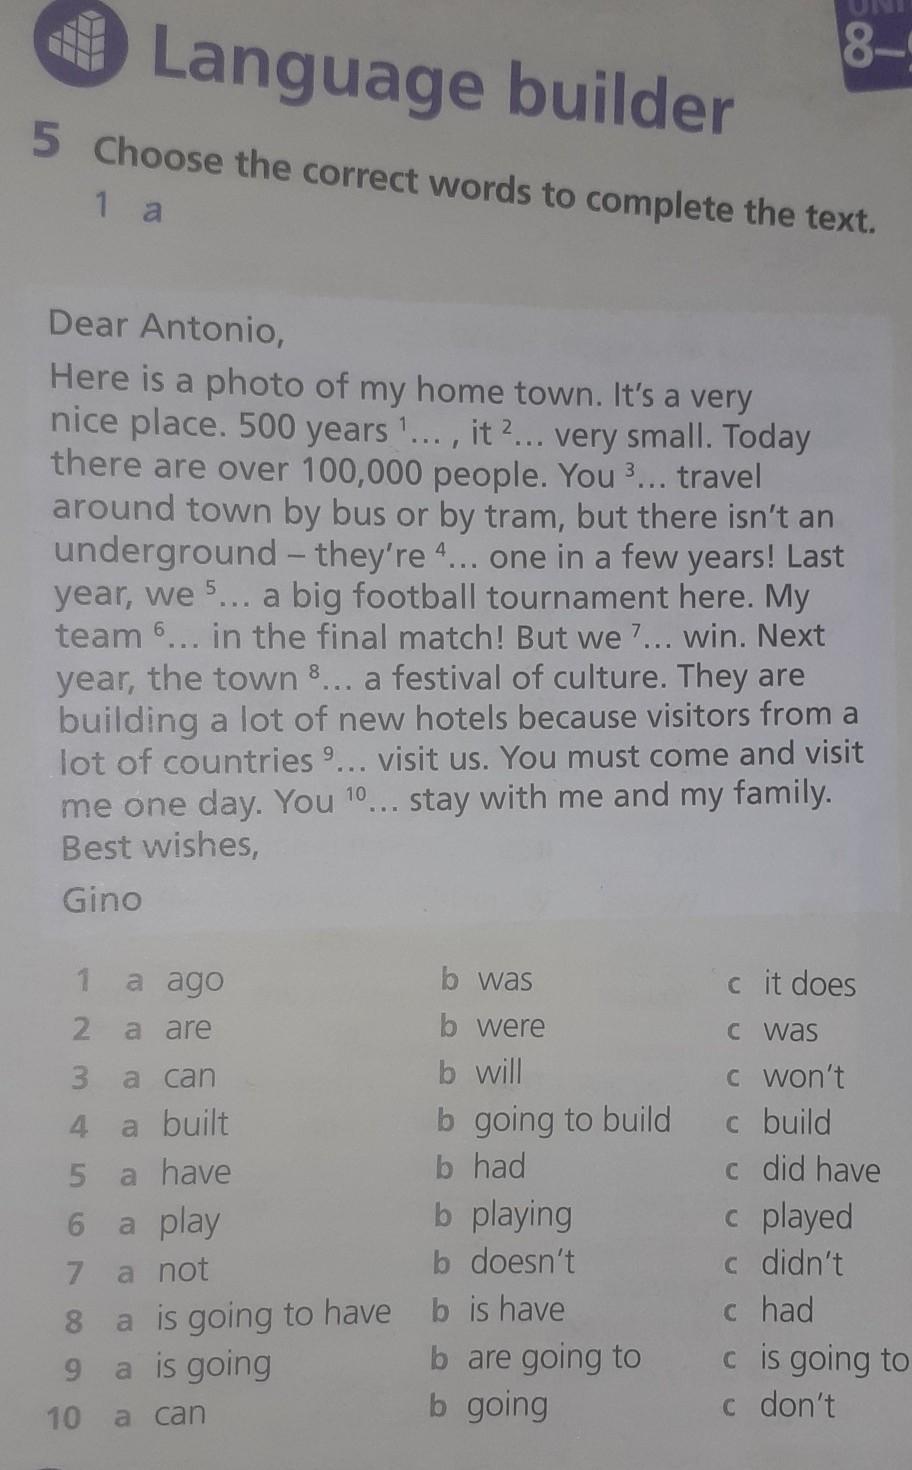 Language builder
8–
5 Choose the correct words to complete the text.
1 a
Dear Antonio,
Here is a photo of my home town. It's a very
nice place. 500 years 1... , it 2... very small. Today
there are over 100,000 people. You 3... travel
around town by bus or by tram, but there isn't an
underground – they're 4... one in a few years! Last
year, we 5... a big football tournament here. My
team 6... in the final match! But we 7... win. Next
year, the town 8... a festival of culture. They are
building a lot of new hotels because visitors from a
lot of countries 9... visit us. You must come and visit
me one day. You 10... stay with me and my family.
Best wishes,
Gino
1 a ago b was c it does
2 a are b were c was
3 a can b will c won't
4 a built b going to build c build
5 a have b had c did have
6 a play b playing c played
7 a not b doesn't c didn't
8 a is going to have b is have c had
9 a is going b are going to c is going to
10 a can b going c don't